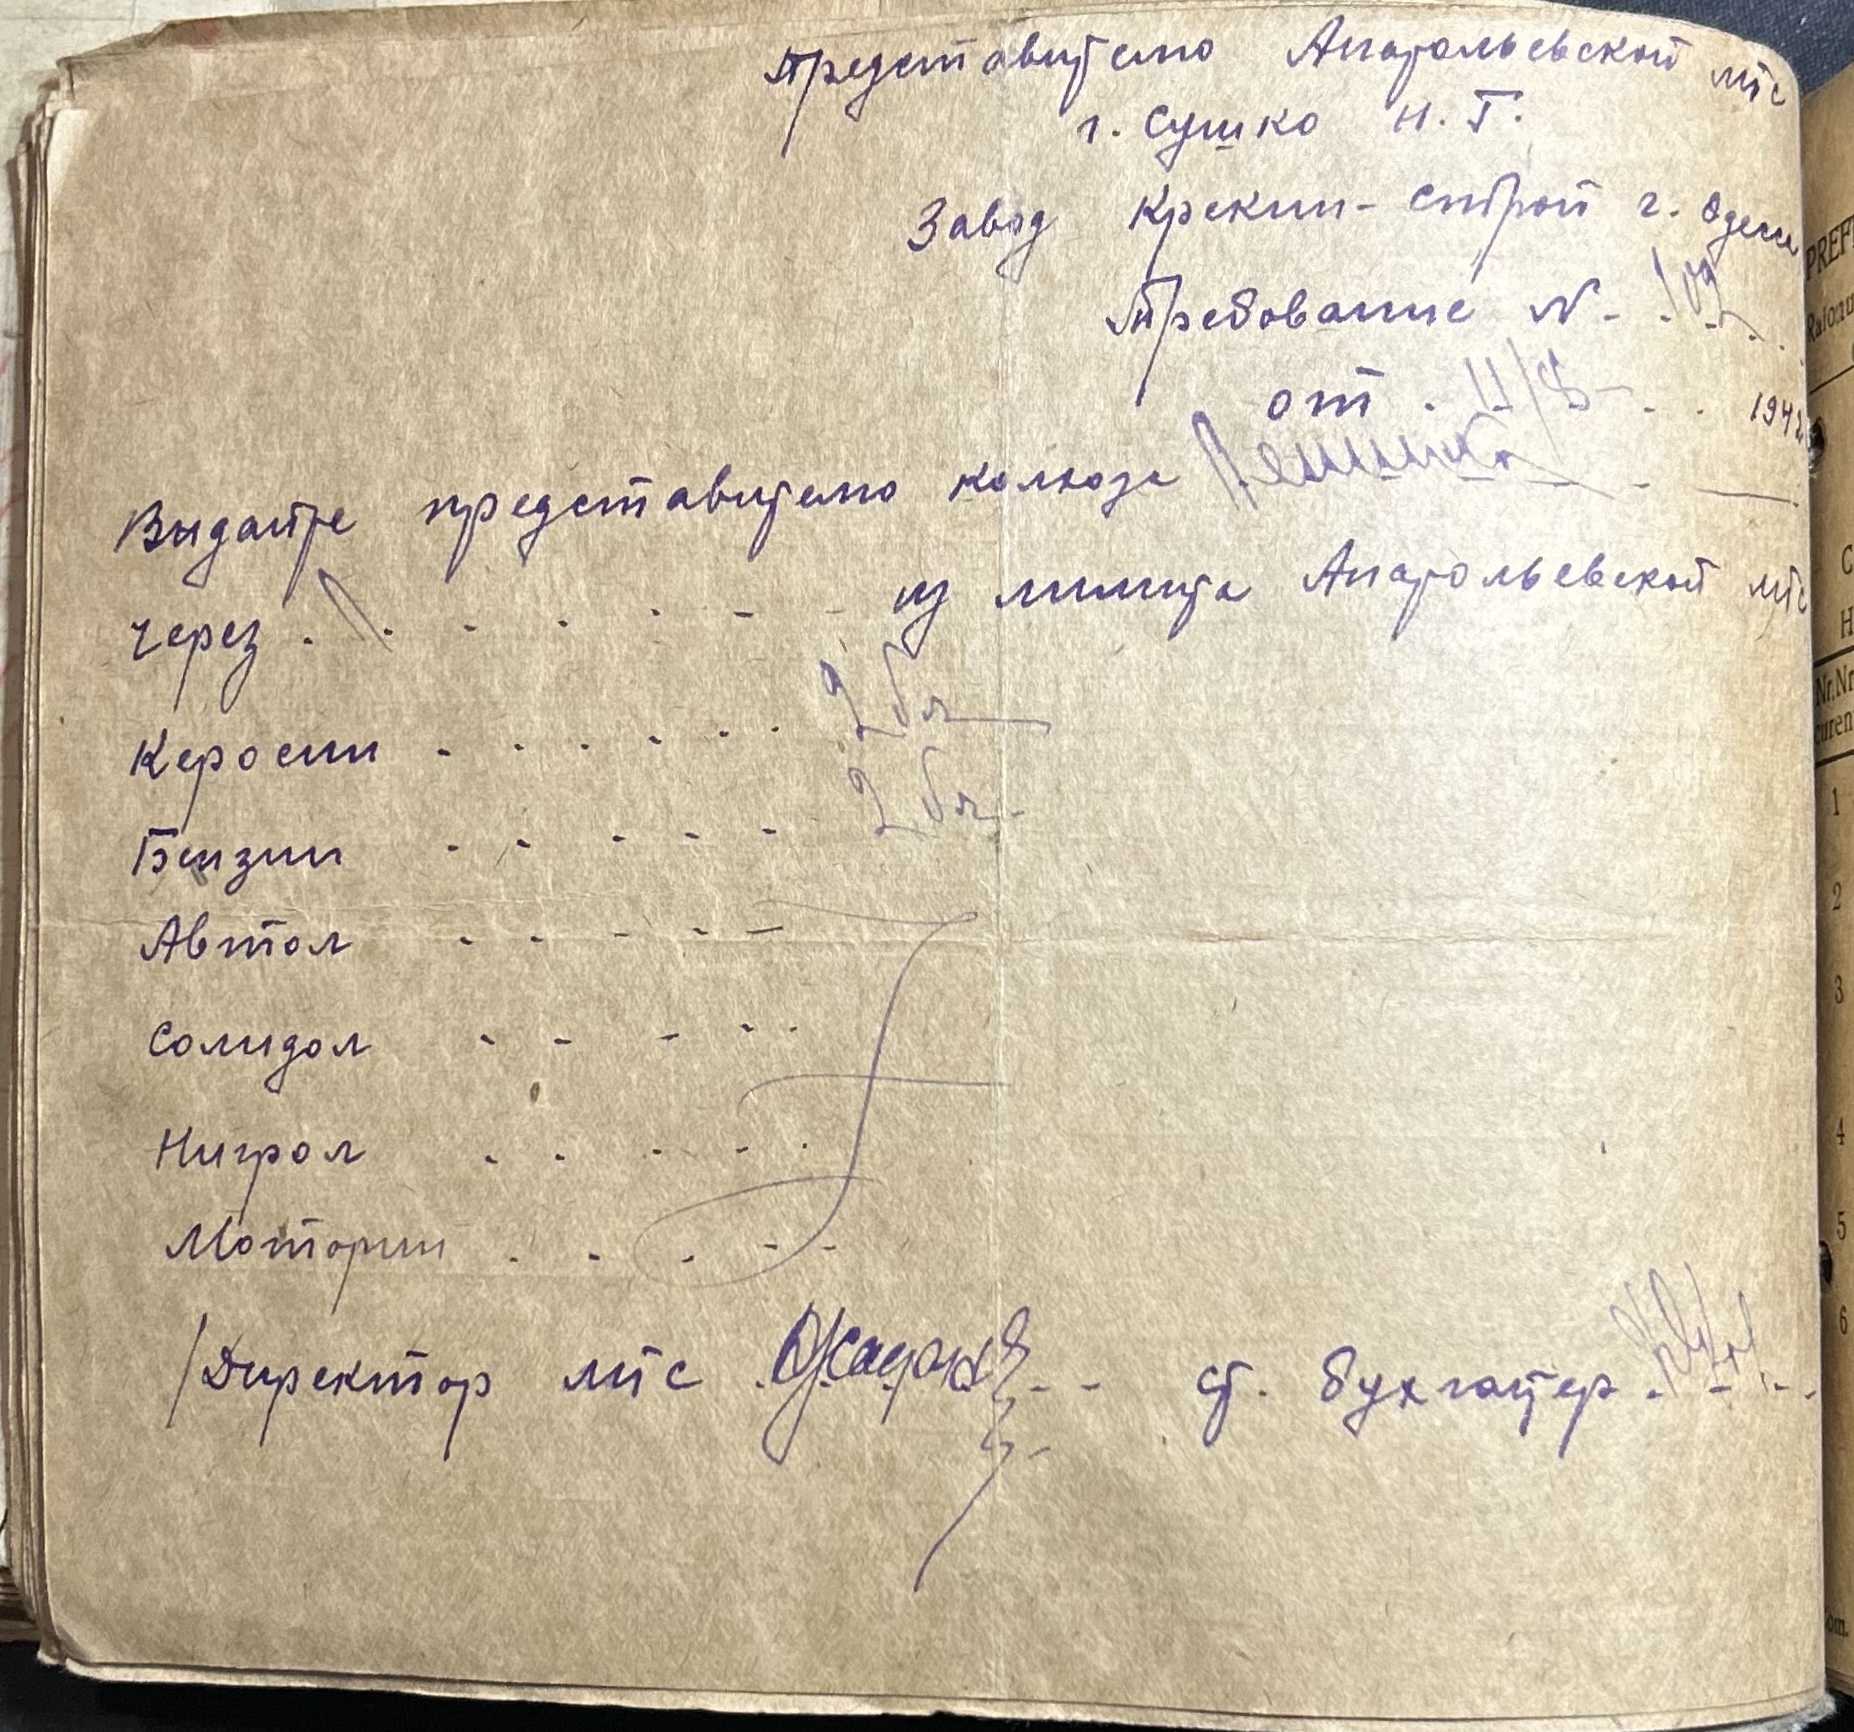 Представителю Анатольевской мтс
г. Сушко Н. Г.
Завод Крекин-строй г. Одесса
Требование №
от . 11/ 1942
Выдайте представителю колхоза Ленина
через . . . . . . . из лимита Анатольевской мтс
Керосин . . . . . . 2 бч
Бензин . . . . . 2 бч.
Автол . . . . .
Солидол . . . . .
Нигрол . . . . .
Моторин . . . . .
Директор мтс ст. бухгалтер
PREF
Raionu
C
H
Nr.Nr
curen
1
2
3
4
5
6
om.